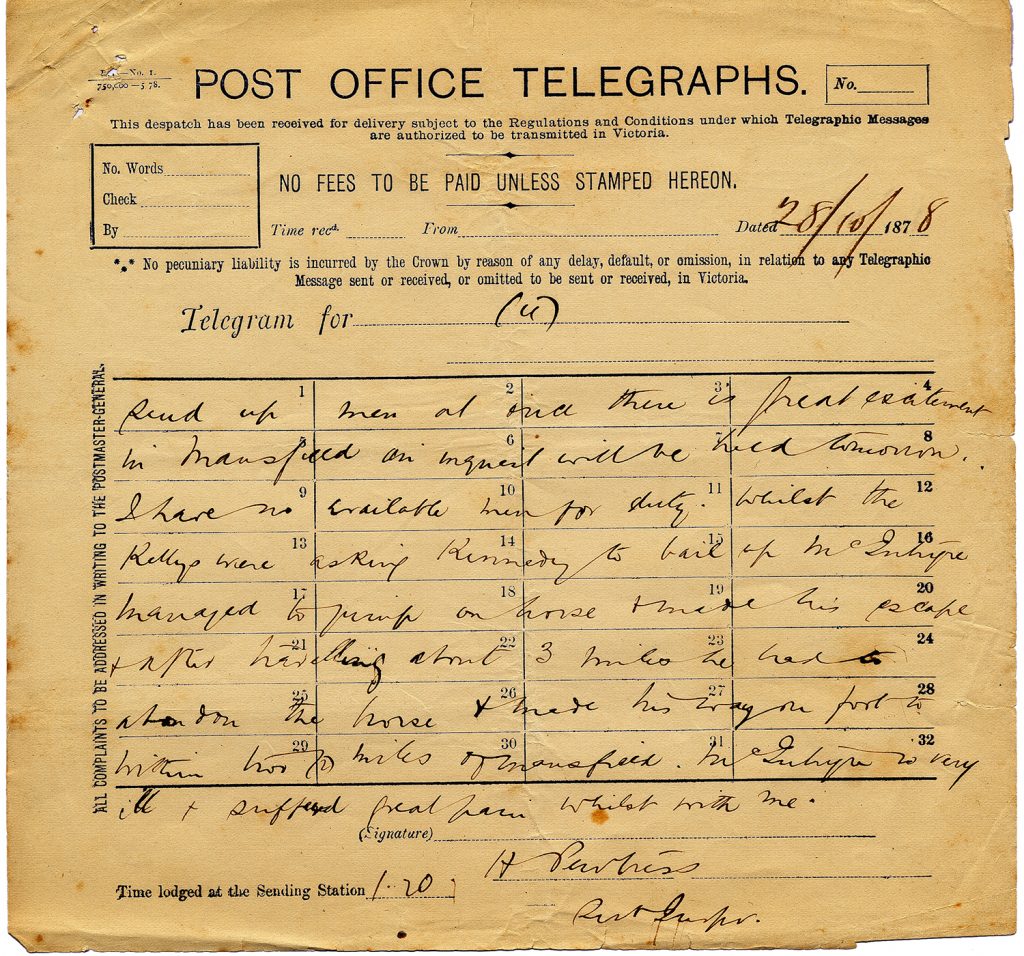 750,000—5.78.
POST OFFICE TELEGRAPHS.
No.
This despatch has been received for delivery subject to the Regulations and Conditions under which Telegraphic Messages
are authorized to be transmitted in Victoria.
No. Words
Check
By
NO FEES TO BE PAID UNLESS STAMPED HEREON.
Time recd.
From
Dated 28/10/1878
*** No pecuniary liability is incurred by the Crown by reason of any delay, default, or omission, in relation to any Telegraphic
Message sent or received, or omitted to be sent or received, in Victoria.
Telegram for
ALL COMPLAINTS TO BE ADDRESSED IN WRITING TO THE POSTMASTER-GENERAL.
1 2 3 4
Send up men at once there is great excitement
5 6 7 8
in Mansfield an inquest will be held tomorrow.
9 10 11 12
I have no available men for duty. Whilst the
13 14 15 16
Kellys were asking Kennedy to bail up McIntyre
17 18 19 20
managed to jump on horse & made his escape
21 22 23 24
& after travelling about 3 miles he had to
25 26 27 28
abandon the horse & made his way on foot to
29 30 31 32
within two (2) miles of Mansfield. McIntyre is very
ill & suffered great pain whilst with me.
(Signature)
H Pewtress
Time lodged at the Sending Station 1.20
Sub Inspr.